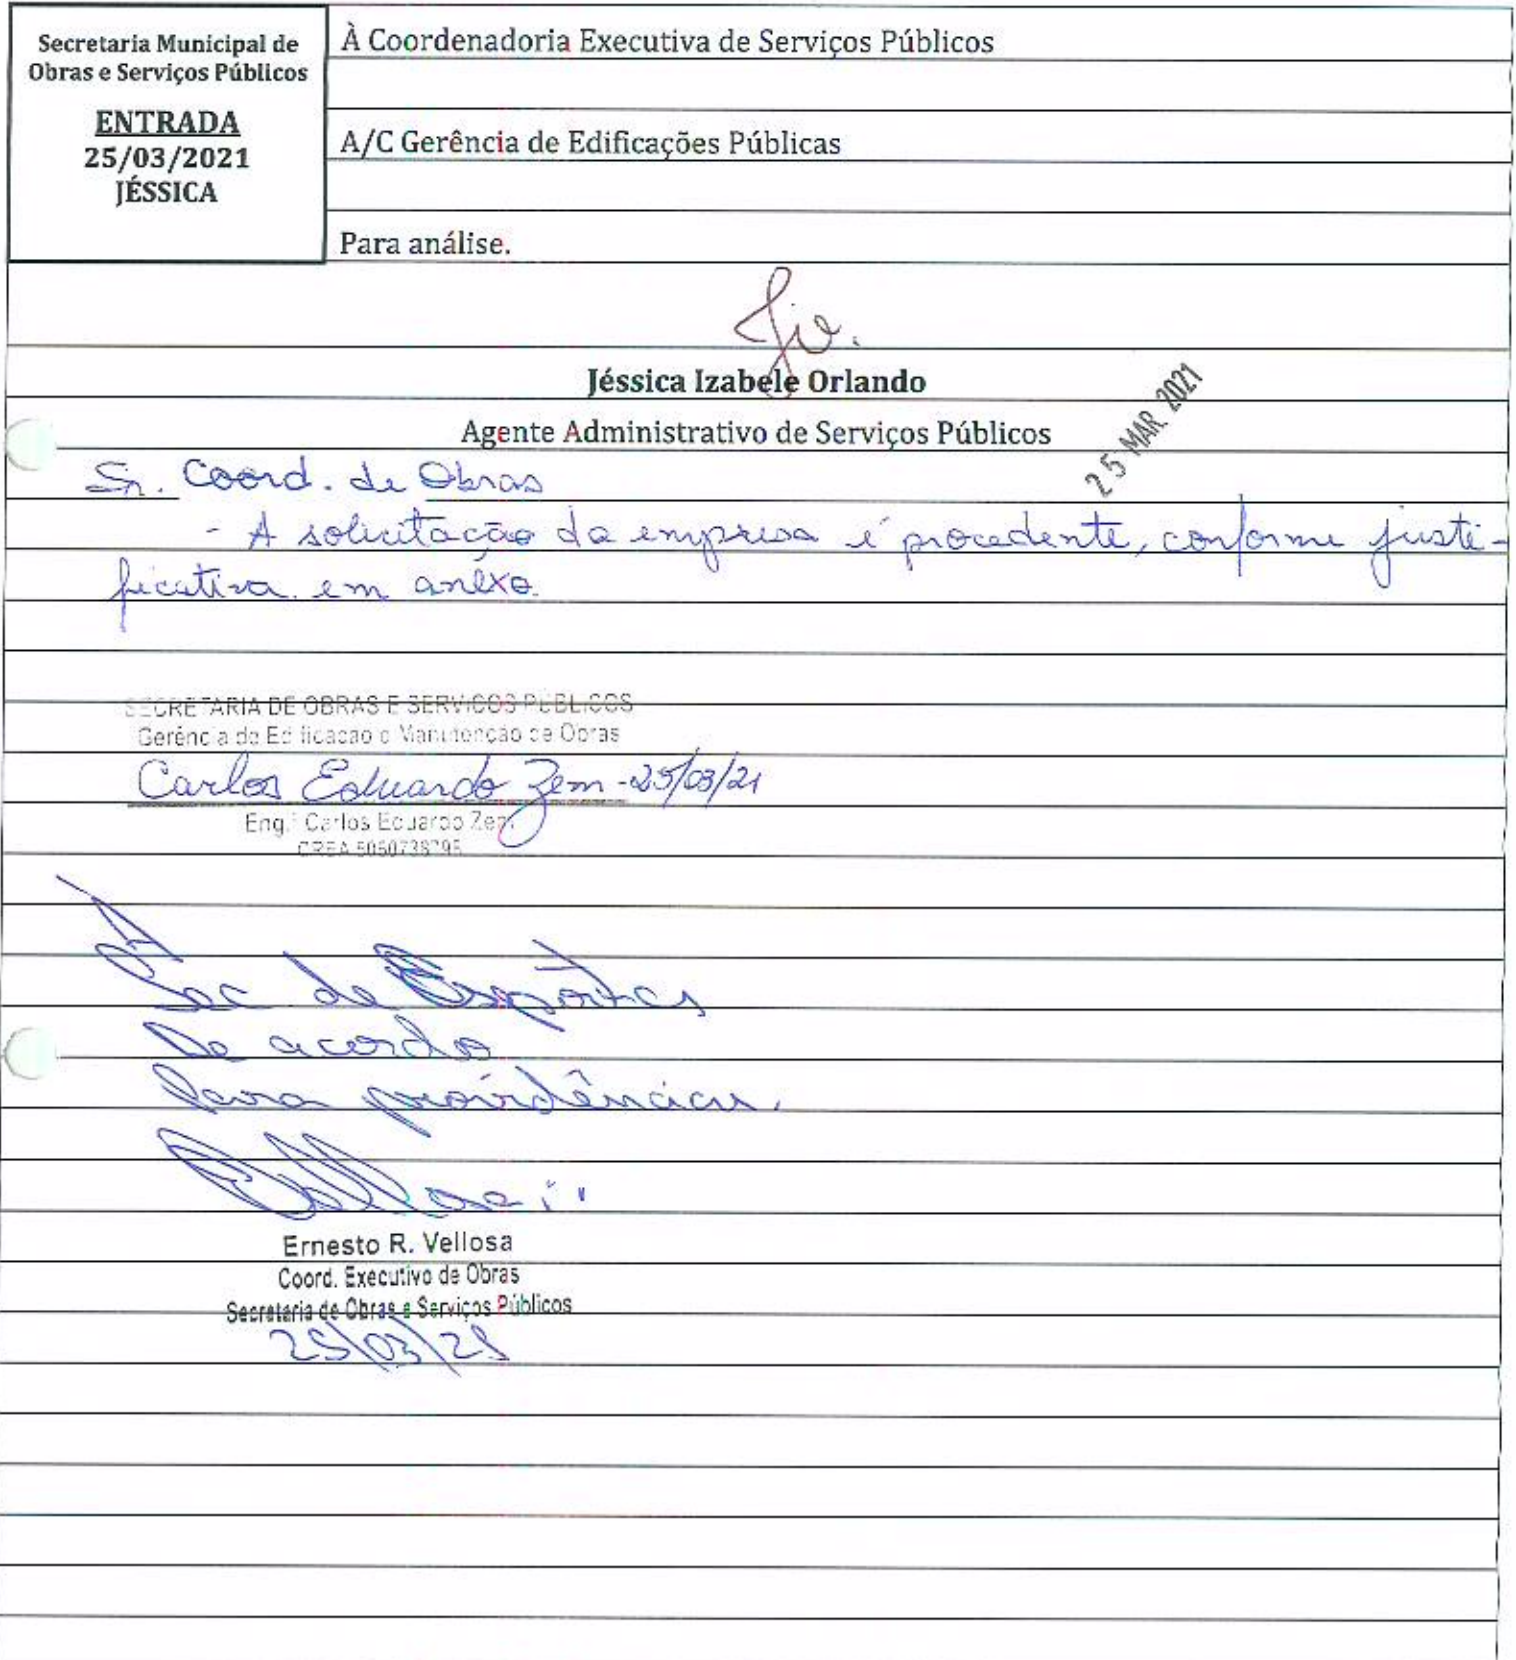 Secretaria Municipal de
Obras e Serviços Públicos
ENTRADA
25/03/2021
JÉSSICA
À Coordenadoria Executiva de Serviços Públicos
A/C Gerência de Edificações Públicas
Para análise.
Jéssica Izabele Orlando
Agente Administrativo de Serviços Públicos
25 MAR 2021
Sr. Coord. de Obras
- A solicitação da empresa é procedente, conforme justi-
ficativa em anexo.
SECRETARIA DE OBRAS E SERVICOS PUBLICOS
Gerência de Edificacao e Manutenção de Obras
Carlos Eduardo Zem - 25/03/21
Eng.º Carlos Eduardo Zem
CREA
À
Sec de Esportes
De acordo
Para providências.
Ernesto R. Vellosa
Coord. Executivo de Obras
Secretaria de Obras e Serviços Públicos
25/03/21